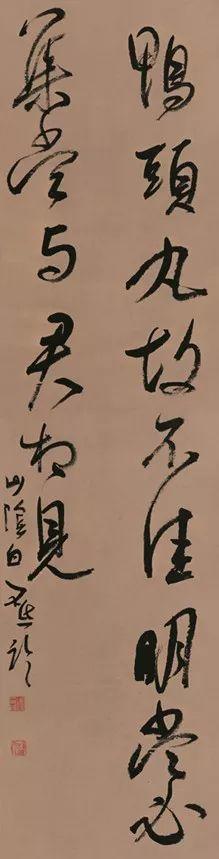 鴨頭丸故不佳明當必
集當与君相見
山陰白